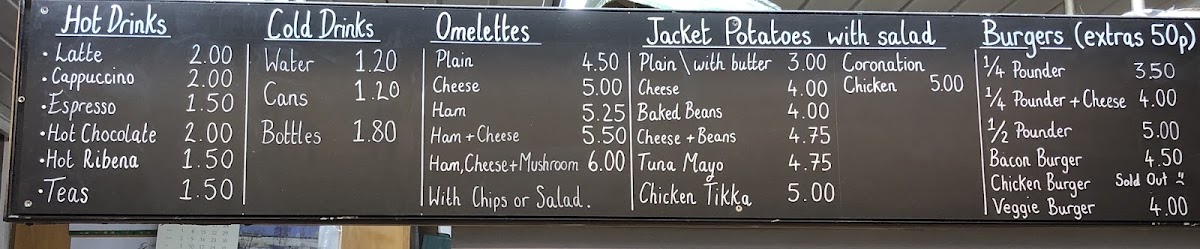 Hot Drinks
• Latte 2.00
• Cappuccino 2.00
• Espresso 1.50
• Hot Chocolate 2.00
• Hot Ribena 1.50
• Teas 1.50
Cold Drinks
Water 1.20
Cans 1.20
Bottles 1.80
Omelettes
Plain 4.50
Cheese 5.00
Ham 5.25
Ham + Cheese 5.50
Ham, Cheese + Mushroom 6.00
With Chips or Salad.
Jacket Potatoes with salad
Plain \ with butter 3.00
Cheese 4.00
Baked Beans 4.00
Cheese + Beans 4.75
Tuna Mayo 4.75
Chicken Tikka 5.00
Coronation
Chicken 5.00
Burgers (extras 50p)
1/4 Pounder 3.50
1/4 Pounder + Cheese 4.00
1/2 Pounder 5.00
Bacon Burger 4.50
Chicken Burger Sold Out
Veggie Burger 4.00